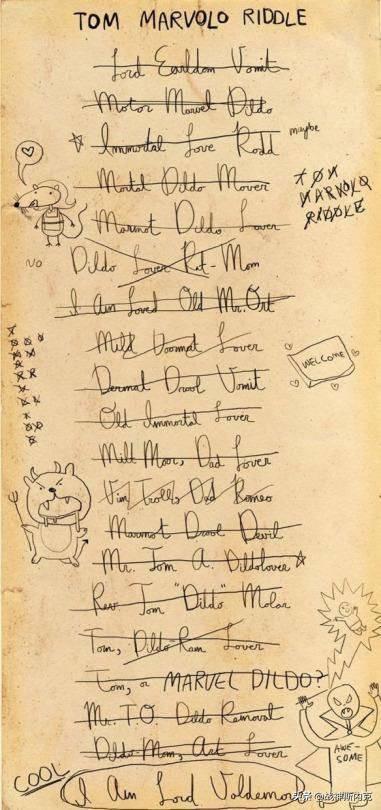 TOM MARVOLO RIDDLE
Lord Earldom Vomit
Motor Marvel Dildo
Immortal Love Rodd
maybe
Mortal Dildo Mover
TOM
MARVOLO
RIDDLE
Marmot Dildo Lover
NO
Dildo Lover Rat-Mom
I Am Loved Old Mr. Ort
Mild Doormat Lover
WELCOME
Dermal Drool Vomit
Old Immortal Lover
Milt Moor, Dad Lover
Vim Troll, Dad Romeo
Marmot Drool Devil
Mr. Tom A. Dildolover
Rev Tom "Dildo" Molar
Tom, Dildo-Ram Lover
Tom, or MARVEL DILDO?
Mr. T.O. Dildo Removal
Dildo Mom, Art Lover
AWE-
SOME
COOL
I Am Lord Voldemort
头条 @战裤斯内克